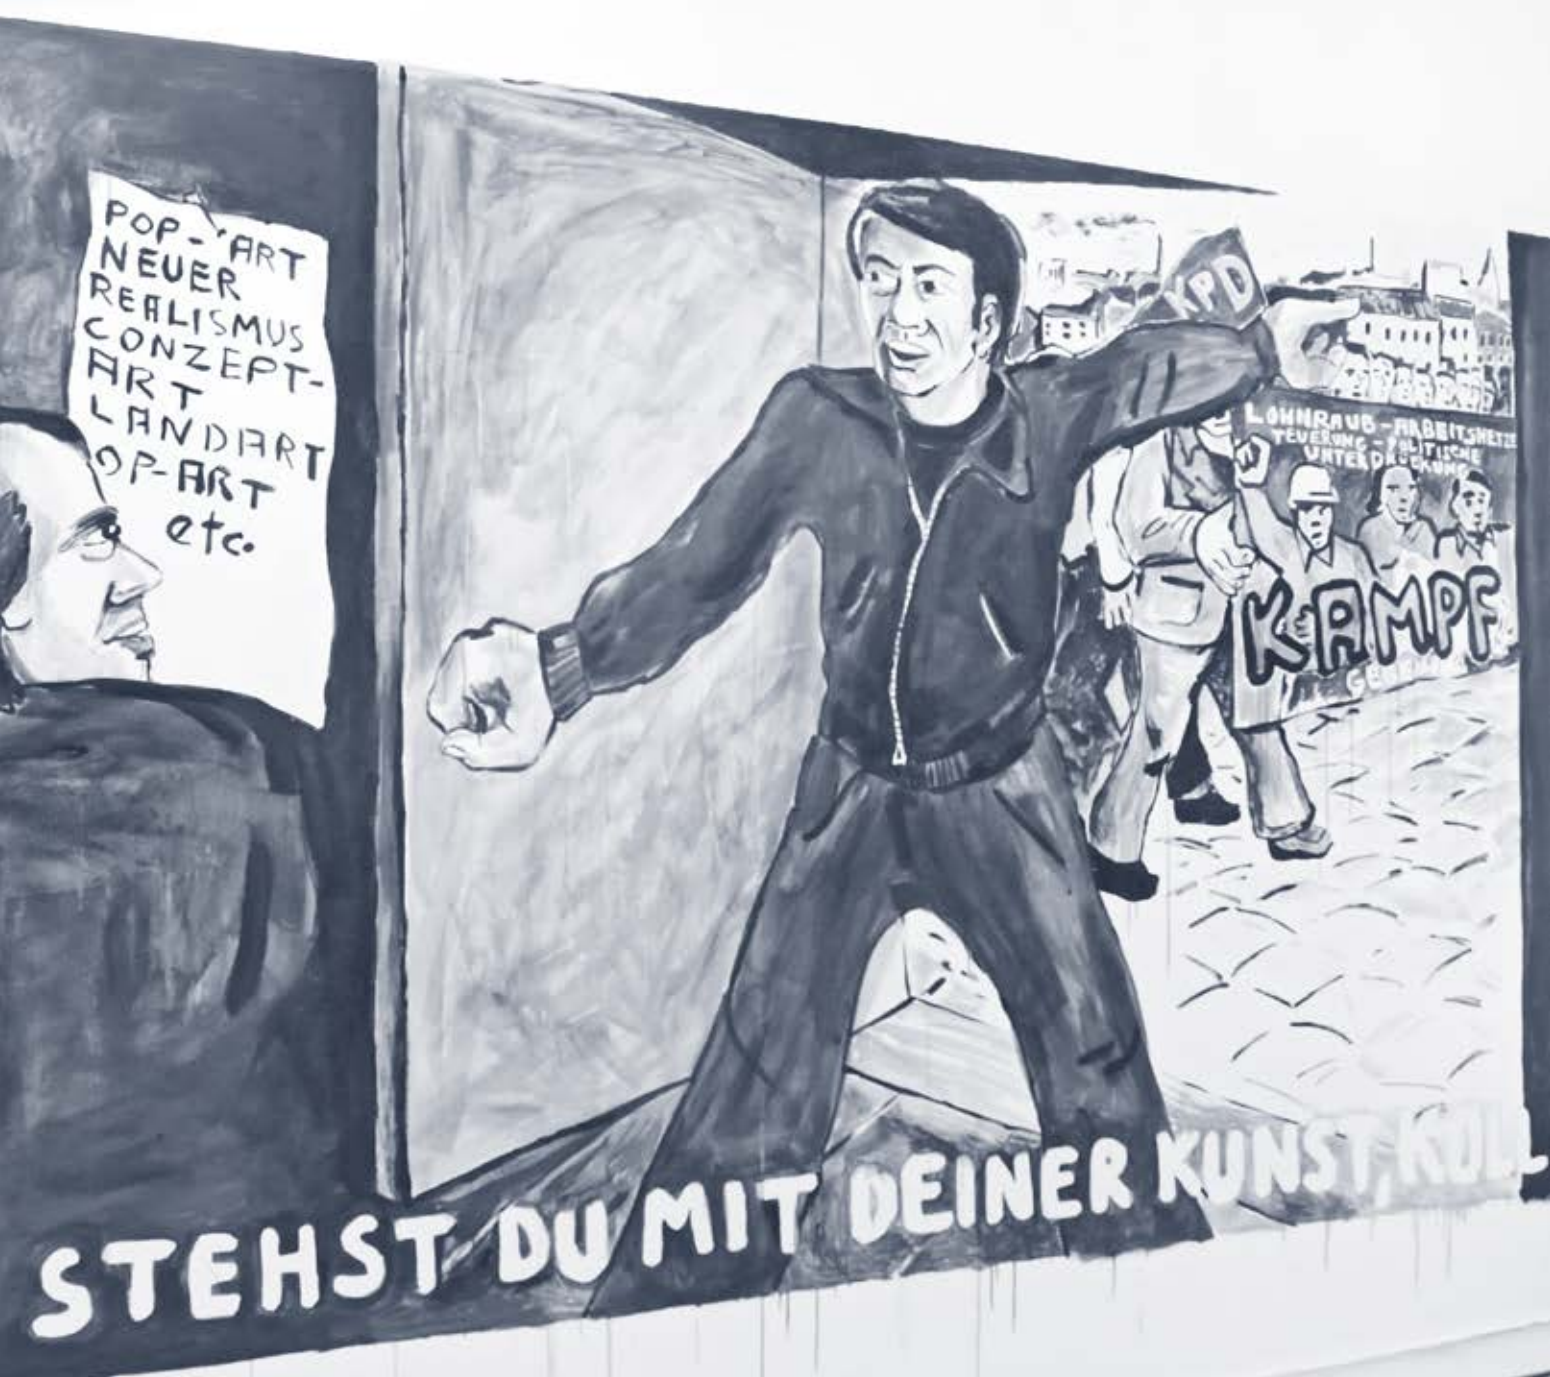 POP-ART
NEUER
REALISMUS
CONZEPT-
ART
LANDART
OP-ART
etc.
KPD
LOHNRAUB-ARBEITSHETZE
TEUERUNG-POLITISCHE
UNTERDRÜCKUNG
KAMPF
STEHST DU MIT DEINER KUNST, KOLL